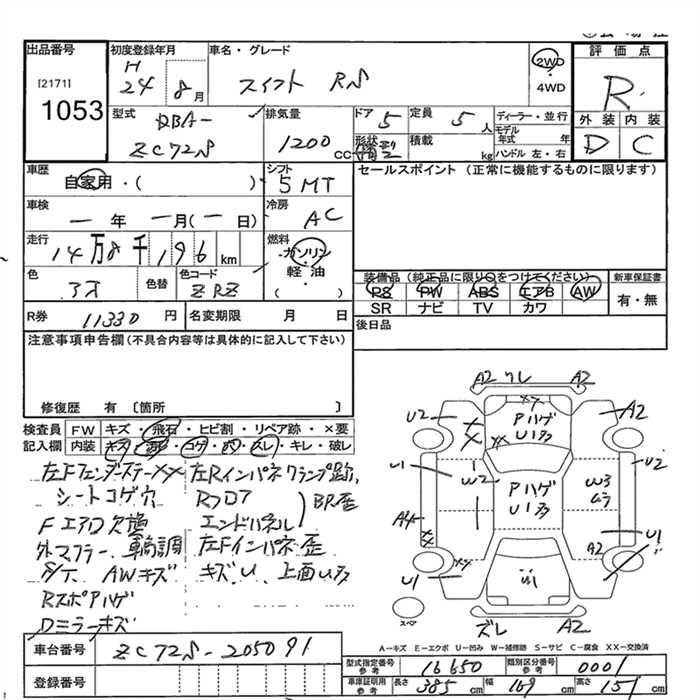 出品番号
[2171]
1053
初度登録年月
H
24 8月
車名・グレード
スイフト RS
2WD
・
4WD
評価点
R
外装 内装
D C
型式
DBA-
ZC72S
排気量
1200
CC
ドア
5
定員
5人
形状
積載
kg
ディーラー・並行
モデル
年式 年
ハンドル 左・右
車歴
自家用・( )
シフト
5MT
セールスポイント (正常に機能するものに限ります)
車検
一年 一月(一日)
冷房
AC
走行
14万8千196km
燃料
ガソリン
軽・油
( )
色
色替
色コード
ZRZ
装備品(純正品に限り○をつけてください)
PS PW ABS エアB AW
SR ナビ TV カワ
新車保証書
有・無
R券 11330円
名変期限 月 日
後日品
注意事項申告欄(不具合内容等は具体的に記入して下さい)
修復歴 有 〔箇所 〕
検査員 FW キズ・飛石・ヒビ割・リペア跡・×要
記入欄 内装 キズ・汚れ・コゲ・穴・スレ・キレ・破レ
左Fフェンダーステー××
シートコゲ穴
Fエアロ欠損
外マフラー、車高調
S/T AWキズ
Rスポアハゲ
Dミラーキズ
左Rインパネクランプ跡、
Rフロア
エンドパネル
BR歪
左Fインパネ歪
キズ、U、上面U多
A2 ワレ A2
U2
××
Pハゲ
U多
A2
××
U1
W2
Pハゲ
U多
W3
ムラ
U2
A4
××
U1
A2
U1
××
U1
スペア
ズレ A2
A-キズ E-エクボ U-凹み W-補修跡 S-サビ C-腐食 XX-交換済
車台番号 ZC72S-205091
登録番号
型式指定番号
参考
16650
類別区分番号
参考
0001
車庫証明用
参考
長さ 385cm 幅 169cm 高さ 151cm